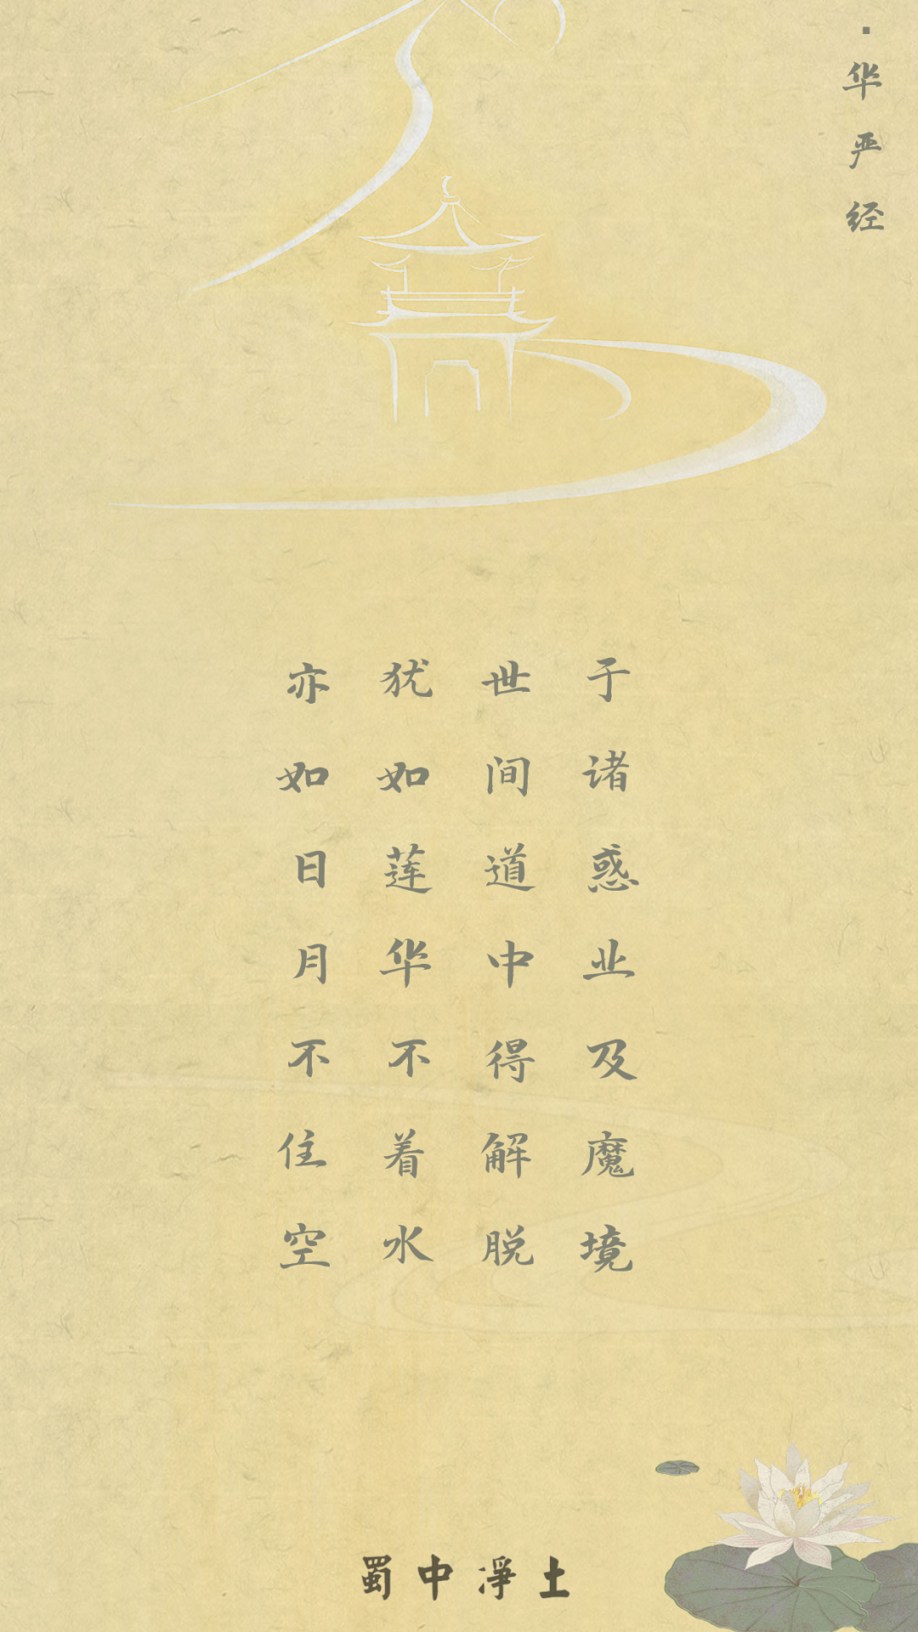 ·华严经
于诸惑业及魔境
世间道中得解脱
犹如莲华不着水
亦如日月不住空
蜀中凈土